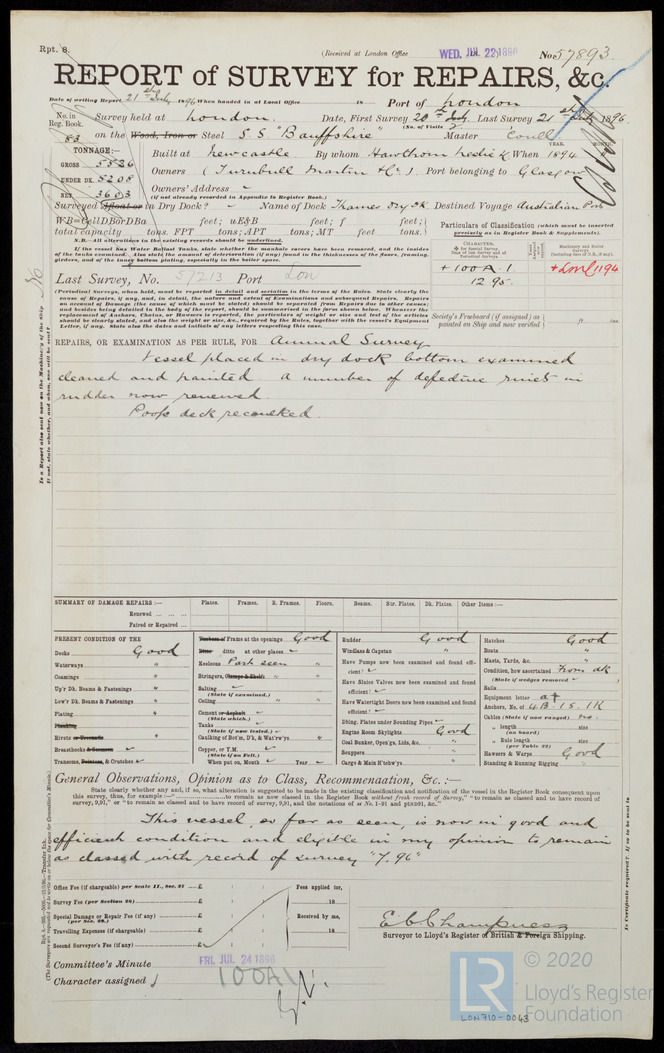 Rpt. 8.
(Received at London Office WED. JUL 22 1896 No. 57893
REPORT of SURVEY for REPAIRS, &c.
Date of writing Report 21st July 1896 When handed in at Local Office 18 Port of London
No. in Reg. Book. Survey held at London. Date, First Survey 20th July Last Survey 21st July 1896
(No. of Visits 2
83 on the Wood, Iron or Steel S S "Banffshire" Master Coull
TONNAGE:—
GROSS 5526
UNDER DK. 5208
NET 3603
Built at Newcastle. By whom Hawthorn Leslie & When 1894
YEAR. MONTH.
Owners (Turnbull Martin & Co.) Port belonging to Glasgow
Owners' Address
(if not already recorded in Appendix to Register Book.)
Surveyed Afloat or in Dry Dock? Name of Dock Thames Dry Dk. Destined Voyage Australian Port
WB=CellDBorDBa feet; uE&B feet; f feet;
total capacity tons. FPT tons; APT tons; MT feet tons.
N.B.—All alterations in the existing records should be underlined.
If the vessel has Water Ballast Tanks, state whether the manhole covers have been removed, and the insides
of the tanks examined. Also state the amount of deterioration (if any) found in the thicknesses of the floors, framing,
girders, and of the inner bottom plating, especially in the boiler space.
Particulars of Classification (which must be inserted
precisely as in Register Book & Supplements).
CHARACTER.
+100A.1
12.95.
+LMC 1194
Last Survey, No. 57213 Port Lon
(Periodical Surveys, when held, must be reported in detail and seriatim in the terms of the Rules. State clearly the
cause of Repairs, if any, and, in detail, the nature and extent of Examinations and subsequent Repairs. Repairs
on account of Damage (the cause of which must be stated) should be separated from Repairs due to other causes;
and besides being detailed in the body of the report, should be summarised in the form shown below. Whenever the
replacement of Anchors, Chains, or Hawsers is reported, the particulars of weight or size and test of the articles
should be clearly stated, and also the weight or size, &c., required by the Rules, together with the vessel's Equipment
Letter, if any. State also the dates and initials of any letters respecting this case.
Society's Freeboard (if assigned) as
painted on Ship and now verified ft. ins.
Is a Report also sent now on the Machinery of the Ship
If not, state whether, and when, one will be sent?
REPAIRS, OR EXAMINATION AS PER RULE, FOR Annual Survey
Vessel placed in dry dock bottom examined
cleaned and painted a number of defective rivets in
rudder now renewed.
Poop deck recaulked.
SUMMARY OF DAMAGE REPAIRS:— Plates. Frames. R. Frames. Floors. Beams. Str. Plates. Dk. Plates. Other Items:—
Renewed ... ... ...
Faired or Repaired ...
PRESENT CONDITION OF THE
Decks Good
Waterways "
Coamings "
Up'r Dk. Beams & Fastenings "
Low'r Dk. Beams & Fastenings "
Plating "
Planking
Rivets or Treenails "
Breasthooks & Sternson
Transoms, Pointers, & Crutches
Timbers or Frame at the openings Good
Ditto ditto at other places
Keelsons Part seen "
Stringers, Clamps & Shelfs "
Salting
(State if examined.)
Ceiling "
Cement or Asphalt
(State which.)
Tanks
(State if now tested.)
Caulking of Bot'm, D'k, & Wat'rw'ys "
Copper, or Y.M.
(State if on Felt.)
When put on, Month Year
Rudder Good
Windlass & Capstan "
Have Pumps now been examined and found efficient?
Have Sluice Valves now been examined and found efficient?
Have Watertight Doors now been examined and found efficient?
Dbling. Plates under Sounding Pipes
Engine Room Skylights Good
Coal Bunker, Open'gs, Lids, &c. "
Scuppers "
Cargo & Main H'tchw'ys "
Hatches Good
Boats "
Masts, Yards, &c. "
Condition, how ascertained From dk
(State if wedges removed)
Sails
Equipment letter a†
Anchors, No. of 4B. 1S. 1K
Cables (State if now ranged) no.
" length size
(on board)
" Rule length size
(per Table 22)
Hawsers & Warps Good
Standing & Running Rigging "
General Observations, Opinion as to Class, Recommendation, &c.:—
State clearly whether any, and if so, what alteration is suggested to be made in the existing classification and notification of the vessel in the Register Book consequent upon
this survey, thus, for example:—" to remain as now classed in the Register Book without fresh record of Survey," "to remain as classed and to have record of survey,
9,91," or "to remain as classed and to have record of survey, 9,91, and the notations of ss No. 1-91 and ptnd91, &c."
This vessel, so far as seen, is now in good and
efficient condition and eligible in my opinion to remain
as classed with record of survey "7.96"
Office Fee (if chargeable) per Scale 11., Sec. 27 £ Fees applied for,
Survey Fee (per Section 28) £ 18
Special Damage or Repair Fee (if any) £ Received by me,
(per Sec. 28.)
Travelling Expenses (if chargeable) £ 18
Second Surveyor's Fee (if any) £
E C Champness
Surveyor to Lloyd's Register of British & Foreign Shipping.
Committee's Minute FRI. JUL 24 1896
Character assigned 100A1
LR
© 2020
Lloyd's Register
Foundation
LON710-0043